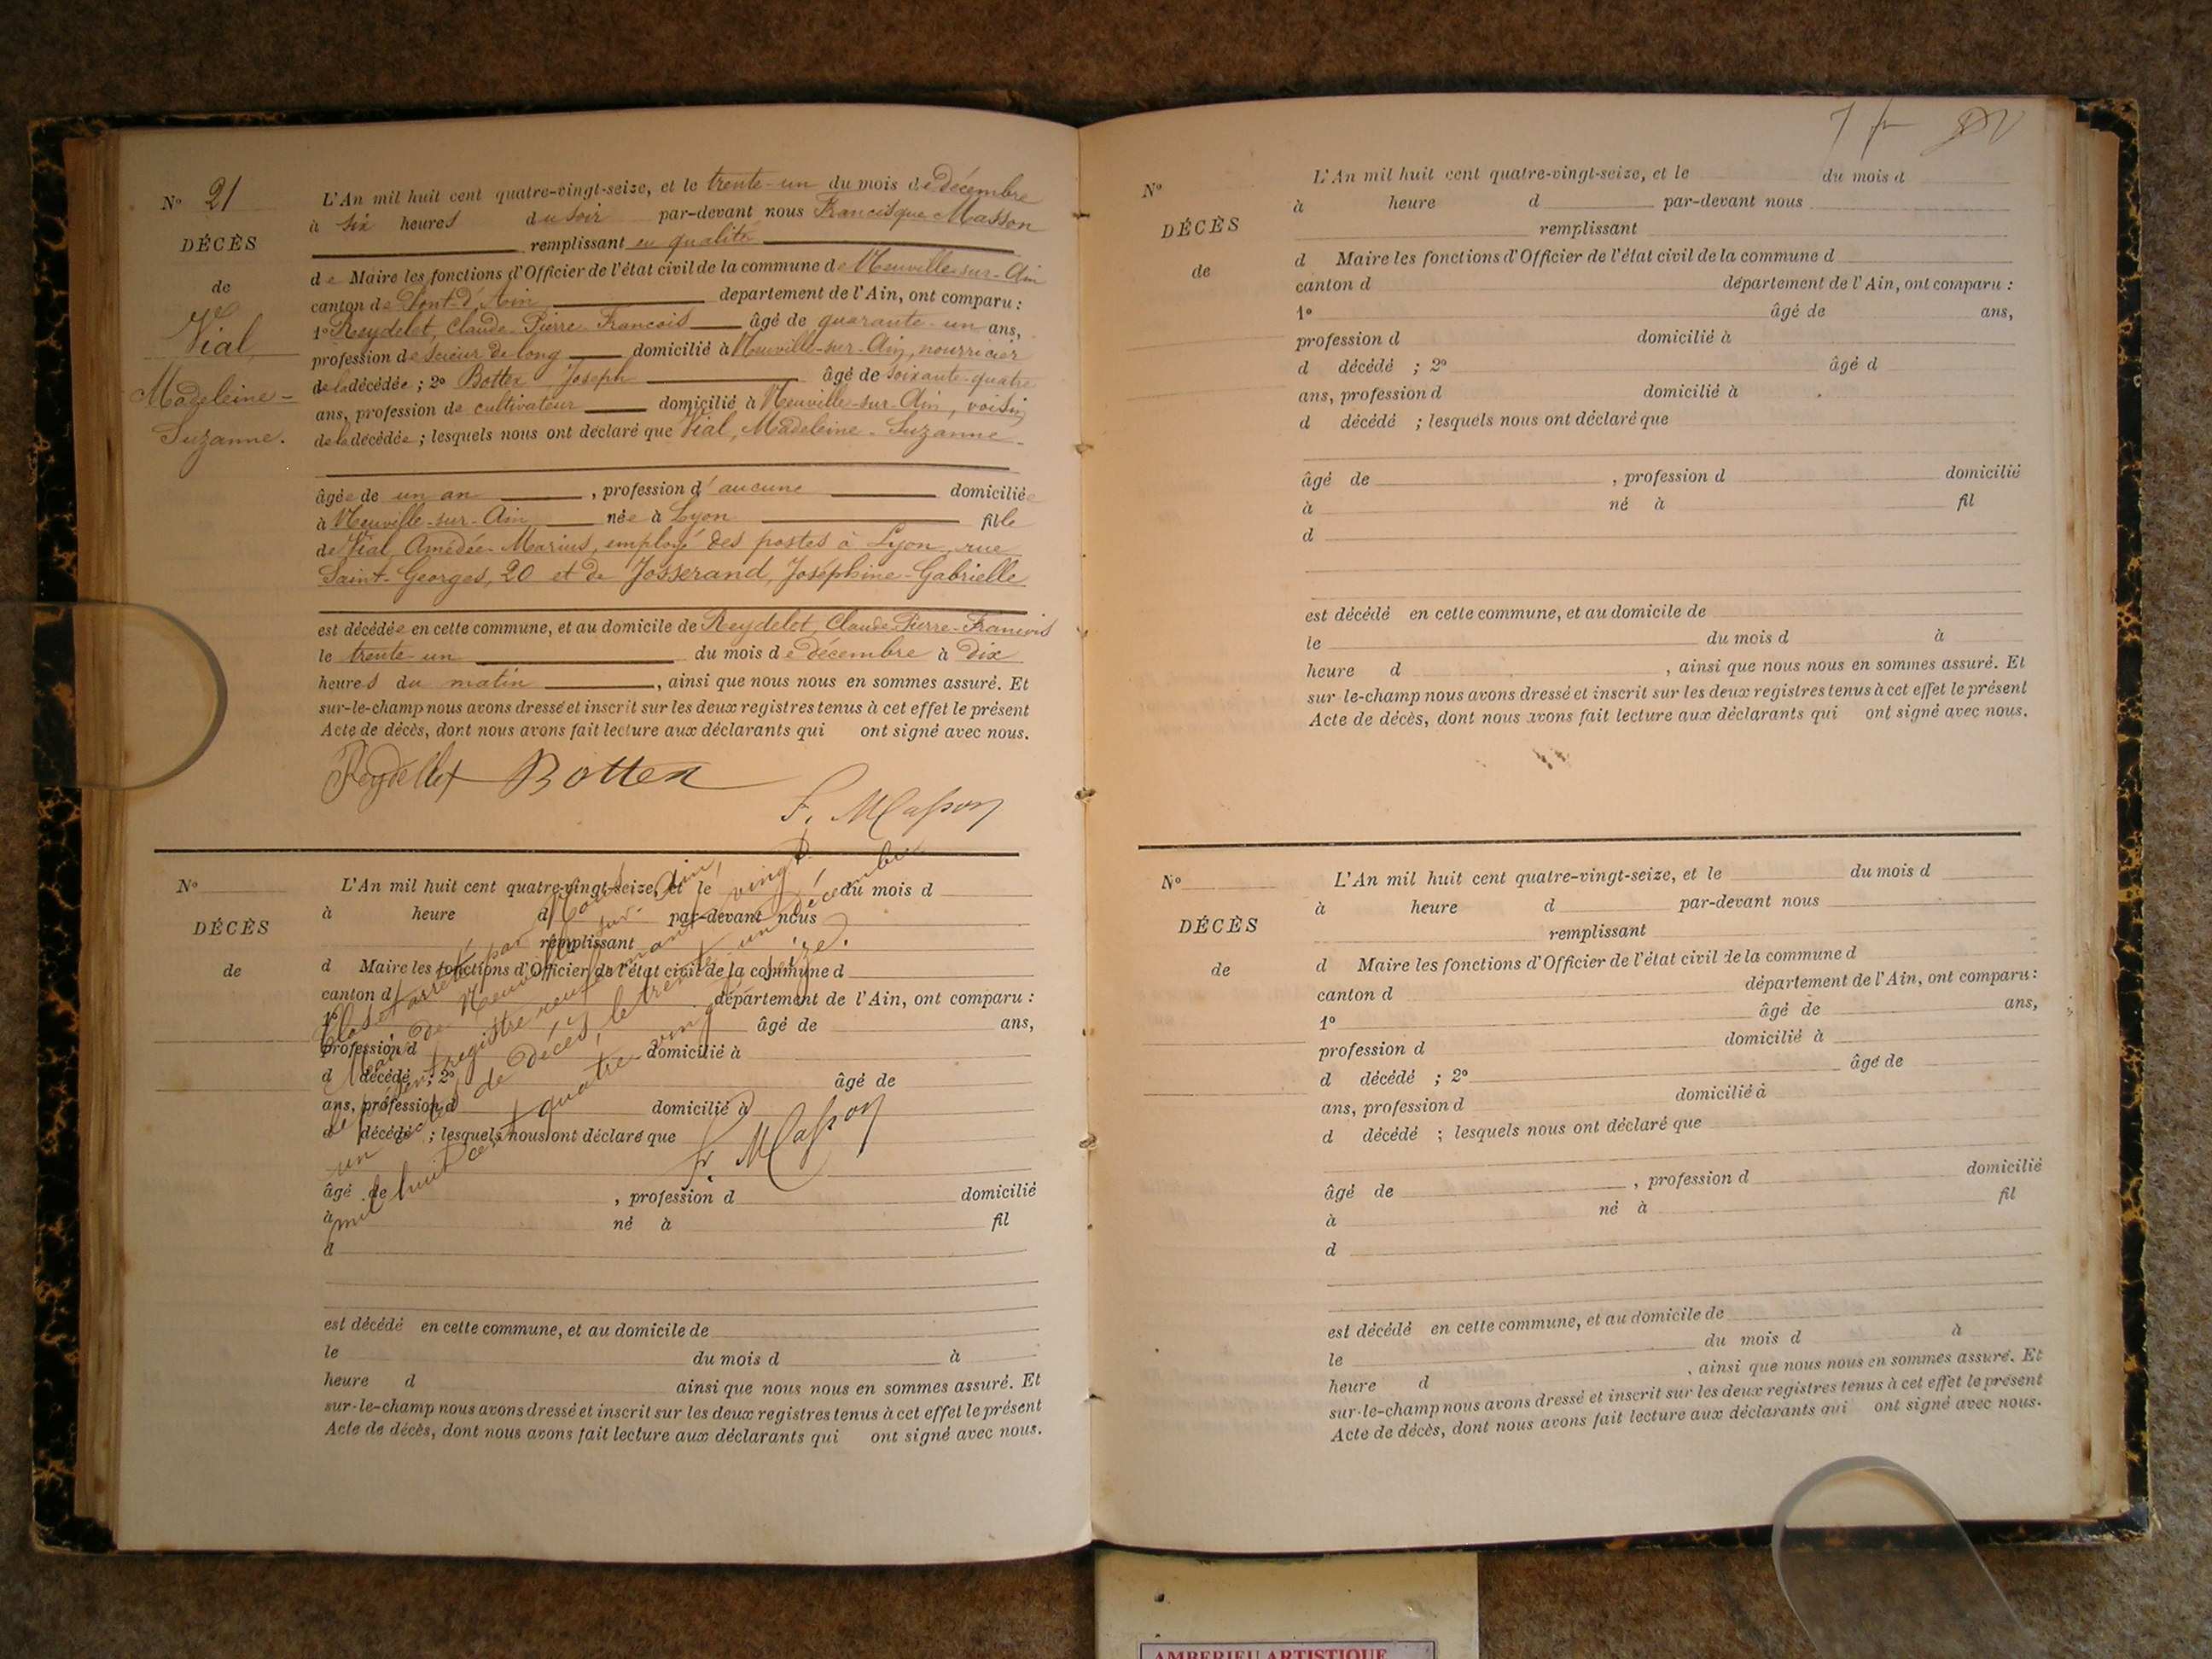 N° 21
DÉCÈS
de
Vial,
Madeleine-
Suzanne.
L'An mil huit cent quatre-vingt-seize, et le trente-un du mois de Décembre
à six heures du soir par-devant nous Francisque Masson
remplissant en qualité
de Maire les fonctions d'Officier de l'état civil de la commune de Neuville-sur-Ain
canton de Pont-d'Ain département de l'Ain, ont comparu :
1° Reydelet, Claude-Pierre-François âgé de quarante-un ans,
profession de scieur de long domicilié à Neuville-sur-Ain, nourricier
de la décédée ; 2° Bottex Joseph âgé de soixante-quatre
ans, profession de cultivateur domicilié à Neuville-sur-Ain, voisin
de la décédée ; lesquels nous ont déclaré que Vial, Madeleine-Suzanne-
âgée de un an , profession d'aucune domiciliée
à Neuville-sur-Ain née à Lyon fille
de Vial, Amédée-Marius, employé des postes à Lyon, rue
Saint-Georges, 20 et de Josserand, Joséphine-Gabrielle
est décédée en cette commune, et au domicile de Reydelet, Claude-Pierre-François
le trente-un du mois de décembre à dix
heures du matin , ainsi que nous nous en sommes assuré. Et
sur-le-champ nous avons dressé et inscrit sur les deux registres tenus à cet effet le présent
Acte de décès, dont nous avons fait lecture aux déclarants qui ont signé avec nous.
Reydellet Bottex
F. Masson
N°
DÉCÈS
de
L'An mil huit cent quatre-vingt-seize, et le du mois d
à heure d par-devant nous
remplissant
d Maire les fonctions d'Officier de l'état civil de la commune d
canton d département de l'Ain, ont comparu :
1° âgé de ans,
profession d domicilié à
d décédé ; 2° âgé de
ans, profession d domicilié à
d décédé ; lesquels nous ont déclaré que
âgé de , profession d domicilié
à né à fil
d
est décédé en cette commune, et au domicile de
le du mois d à
heure d ainsi que nous nous en sommes assuré. Et
sur-le-champ nous avons dressé et inscrit sur les deux registres tenus à cet effet le présent
Acte de décès, dont nous avons fait lecture aux déclarants qui ont signé avec nous.
Clos et arrêté par nous,
Maire de Neuville-sur-Ain,
le présent registre renfermant vingt
un actes de décès, le trente un décembre
mil huit cent quatre vingt seize.
Fr Masson
N°
DÉCÈS
de
L'An mil huit cent quatre-vingt-seize, et le du mois d
à heure d par-devant nous
remplissant
d Maire les fonctions d'Officier de l'état civil de la commune d
canton d département de l'Ain, ont comparu :
1° âgé de ans,
profession d domicilié à
d décédé ; 2° âgé d
ans, profession d domicilié à
d décédé ; lesquels nous ont déclaré que
âgé de , profession d domicilié
à né à fil
d
est décédé en cette commune, et au domicile de
le du mois d à
heure d , ainsi que nous nous en sommes assuré. Et
sur-le-champ nous avons dressé et inscrit sur les deux registres tenus à cet effet le présent
Acte de décès, dont nous avons fait lecture aux déclarants qui ont signé avec nous.
N°
DÉCÈS
de
L'An mil huit cent quatre-vingt-seize, et le du mois d
à heure d par-devant nous
remplissant
d Maire les fonctions d'Officier de l'état civil de la commune d
canton d département de l'Ain, ont comparu :
1° âgé de ans,
profession d domicilié à
d décédé ; 2° âgé de
ans, profession d domicilié à
d décédé ; lesquels nous ont déclaré que
âgé de , profession d domicilié
à né à fil
d
est décédé en cette commune, et au domicile de
le du mois d à
heure d , ainsi que nous nous en sommes assuré. Et
sur-le-champ nous avons dressé et inscrit sur les deux registres tenus à cet effet le présent
Acte de décès, dont nous avons fait lecture aux déclarants qui ont signé avec nous.
AMBERIEU ARTISTIQUE